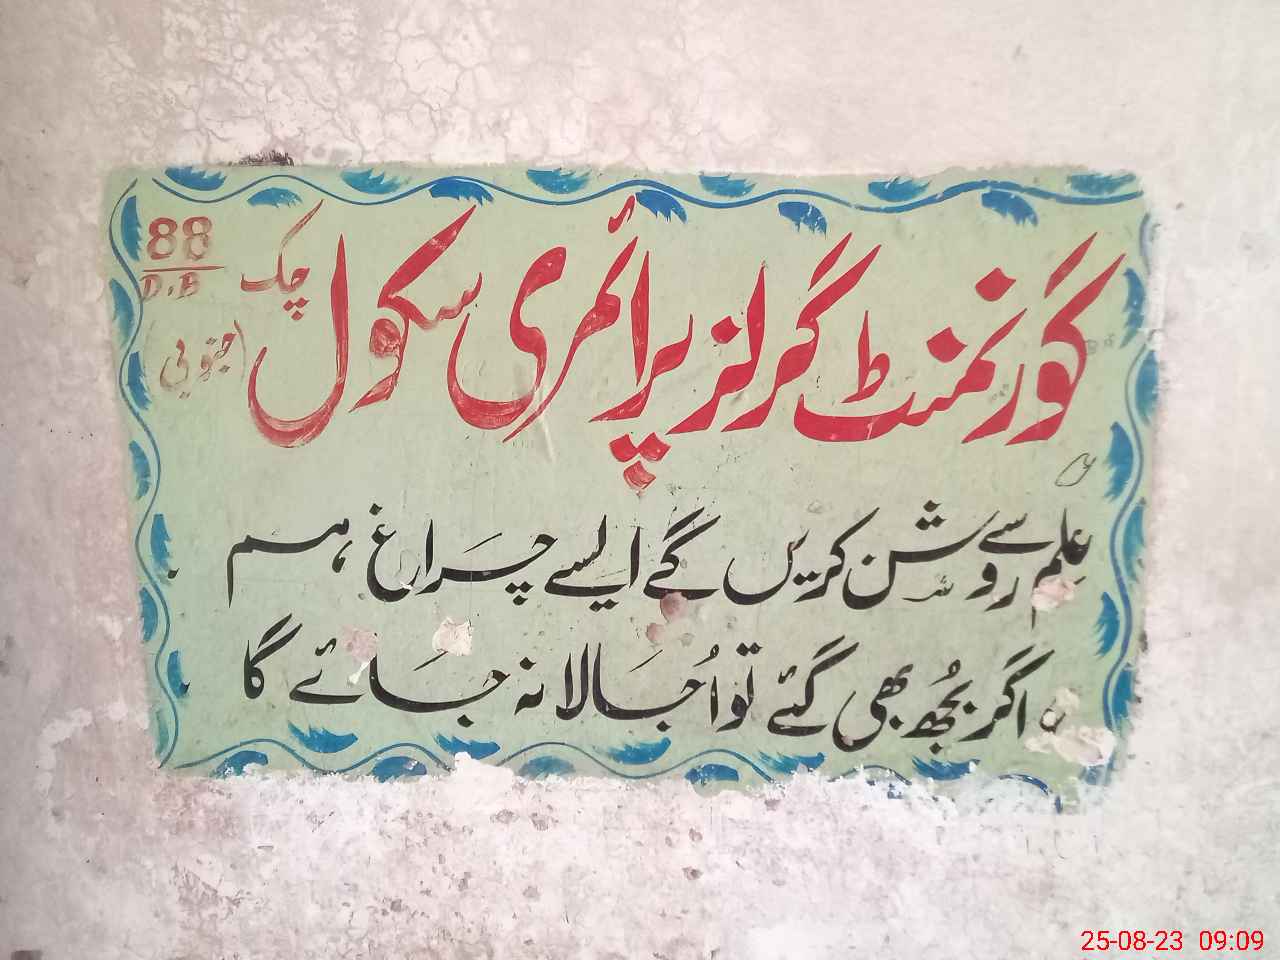 گورنمنٹ گرلز پرائمری سکول چک 88
D.B
(جنوبی)
عِلم سے روشن کریں گے ایسے چَراغ ہم
اگر بُجھ بھی گئے تو اُجَالا نہ جَائے گا
25-08-23 09:09